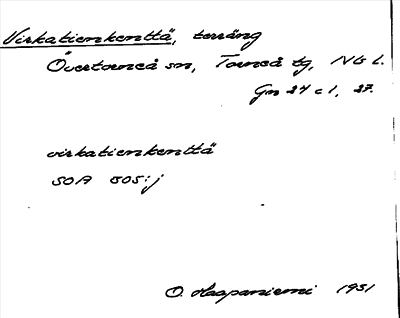 Virkatienkenttä, terräng
Övertorneå sn, Torneå tg, Nb l.
Gn 24 c 1, 27.
virkatienkenttä
SOA 505:j
O. Haapaniemi 1931